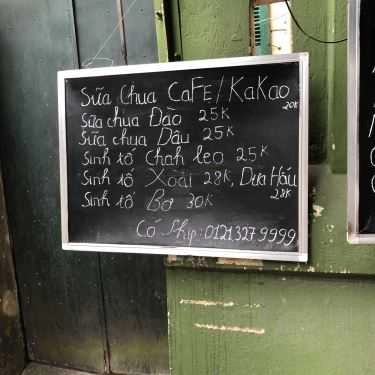 Sữa Chua CaFE/KaKao 20K
Sữa chua Đào 25K
Sữa chua Dâu 25K
Sinh tố Chah leo 25K
Sinh tố Xoài 28K, Dưa Hấu 28K
Sinh tố Bơ 30K
Có Ship: 0121.327.9999